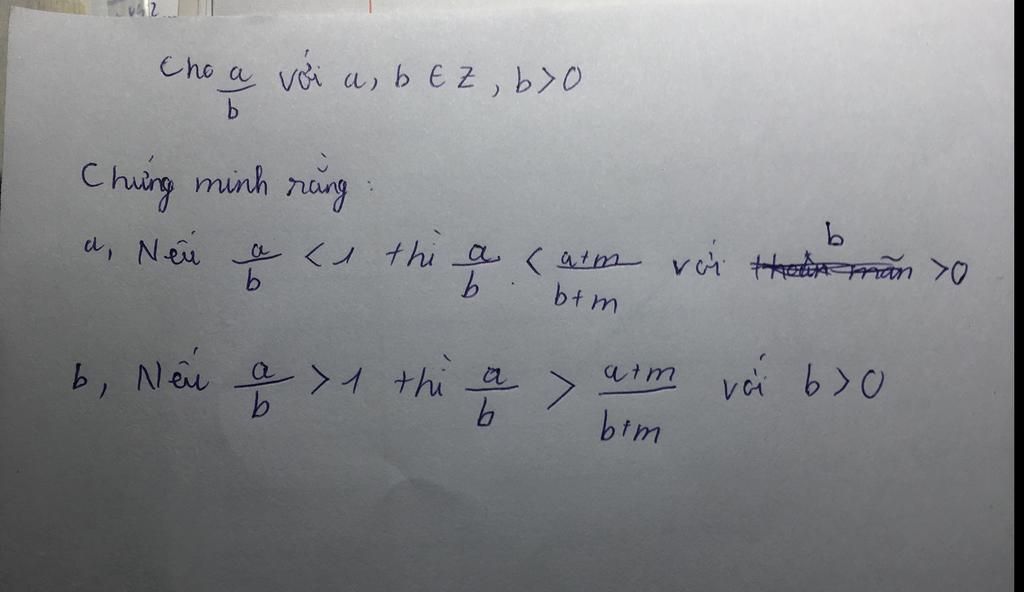 Cho a/b với a, b ∈ Z, b > 0
Chứng minh rằng:
a, Nếu a/b < 1 thì a/b < a+m/b+m với b > 0
b, Nếu a/b > 1 thì a/b > a+m/b+m với b > 0